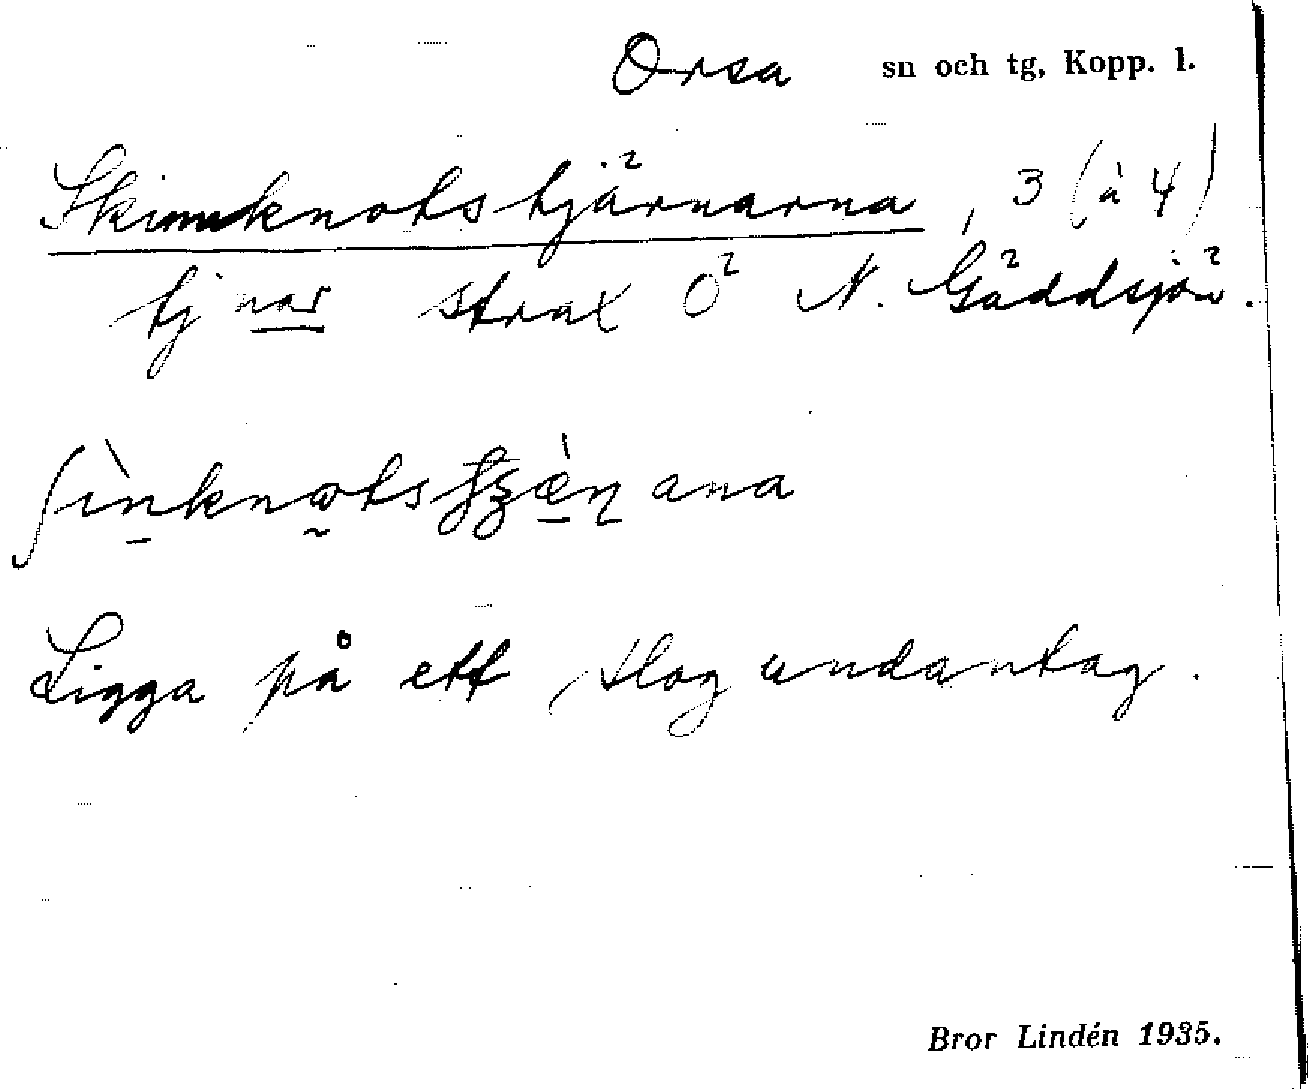 Orsa sn och tg, Kopp. l.
Skinnknotstjärnarna, 3 (à 4)
tjnar strax Ö N. Gäddsjön.
Ligga på ett slogundantag.
Bror Lindén 1935.